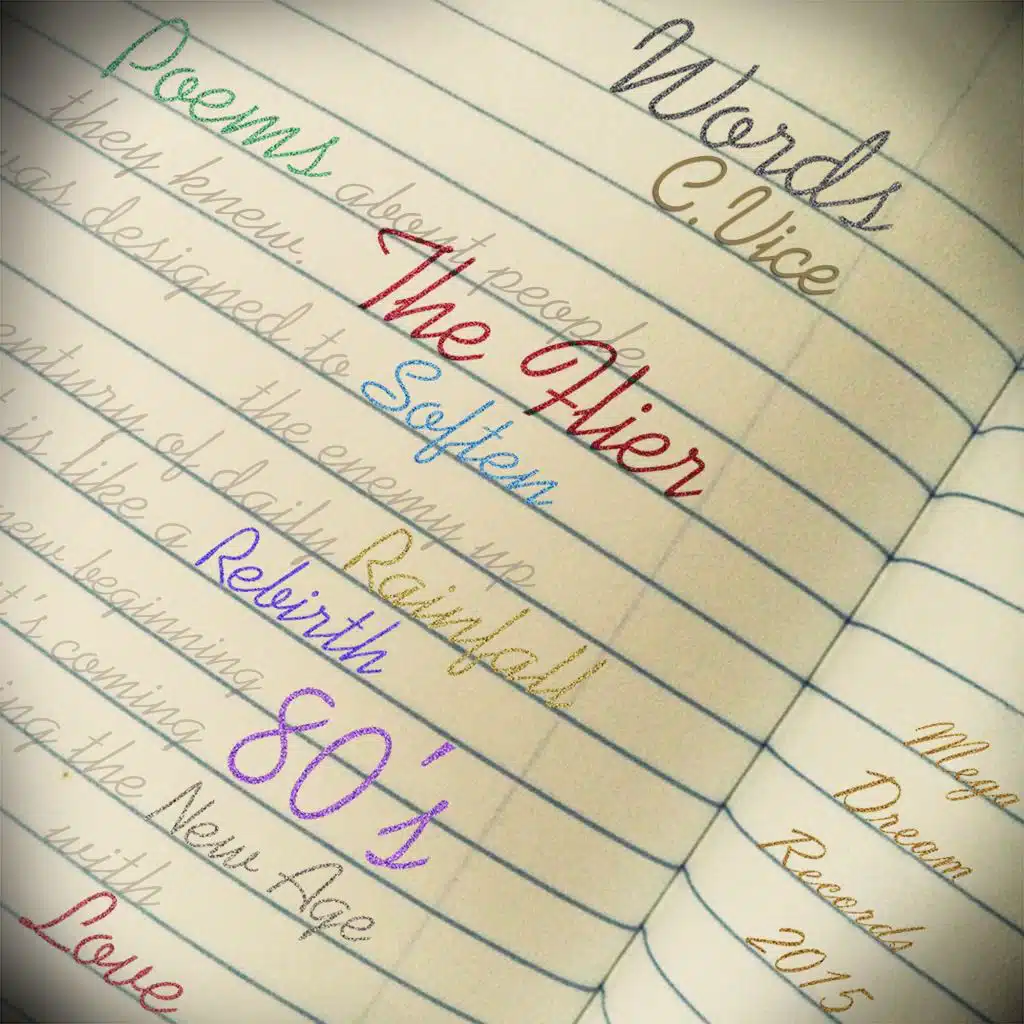 Words
C. Vice
Poems about people
they knew. The Flier
was designed to Soften
the enemy up
century of daily Rainfall
is like a Rebirth
new beginning 80's
it's coming
the New Age
with
Love
Mega
Dream
Records
2015